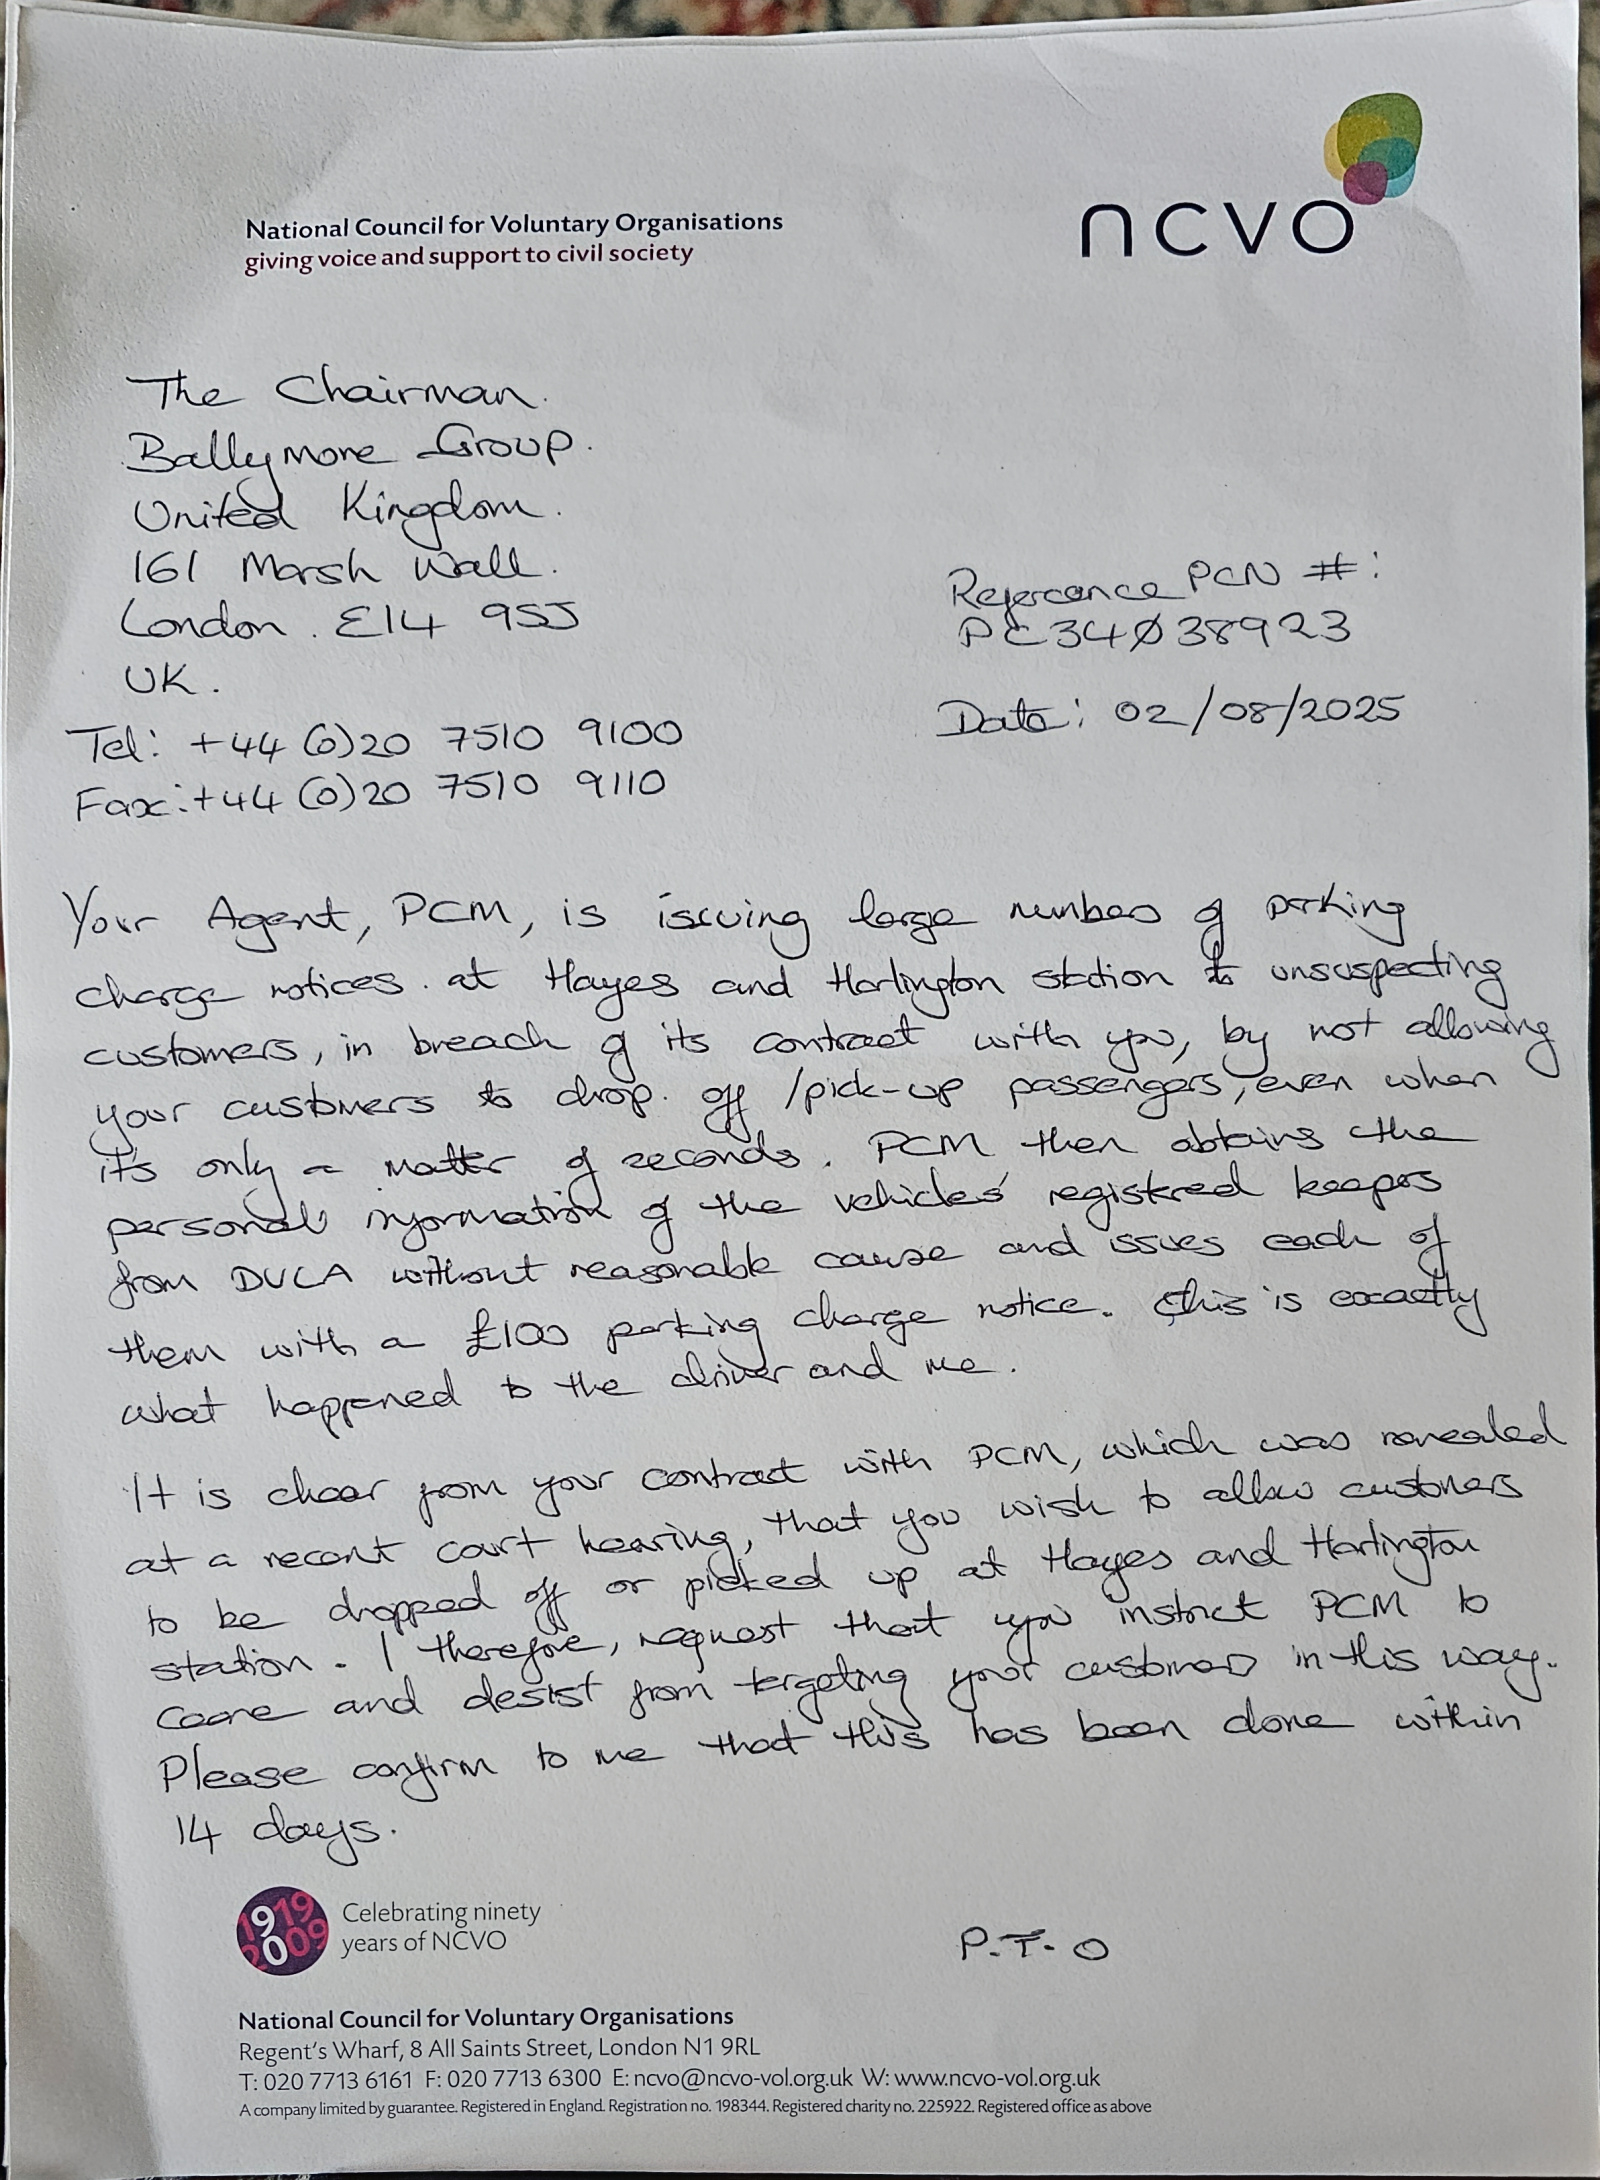 National Council for Voluntary Organisations
giving voice and support to civil society
ncvo
The Chairman.
Ballymore Group.
United Kingdom.
161 Marsh Wall.
London. E14 9SJ
UK.
Tel: +44 (0)20 7510 9100
Fax:+44 (0)20 7510 9110
Referance PCN #:
PC34038923
Date: 02/08/2025
Your Agent, PCM, is issuing large numbers of parking
charge notices. at Hayes and Harlington station to unsuspecting
customers, in breach of its contract with you, by not allowing
your customers to drop. off /pick-up passengers, even when
it's only a matter of seconds. PCM then obtains the
personal information of the vehicles' registered keepers
from DVLA without reasonable cause and issues each of
them with a £100 parking charge notice. This is exactly
what happened to the driver and me.
It is clear from your contract with PCM, which was revealed
at a recent court hearing, that you wish to allow customers
to be dropped off or picked up at Hayes and Harlington
station. I therefore, request that you instruct PCM to
cease and desist from targeting your customers in this way.
Please confirm to me that this has been done within
14 days.
1919
2009
Celebrating ninety
years of NCVO
P.T.O
National Council for Voluntary Organisations
Regent's Wharf, 8 All Saints Street, London N1 9RL
T: 020 7713 6161 F: 020 7713 6300 E: ncvo@ncvo-vol.org.uk W: www.ncvo-vol.org.uk
A company limited by guarantee. Registered in England. Registration no. 198344. Registered charity no. 225922. Registered office as above